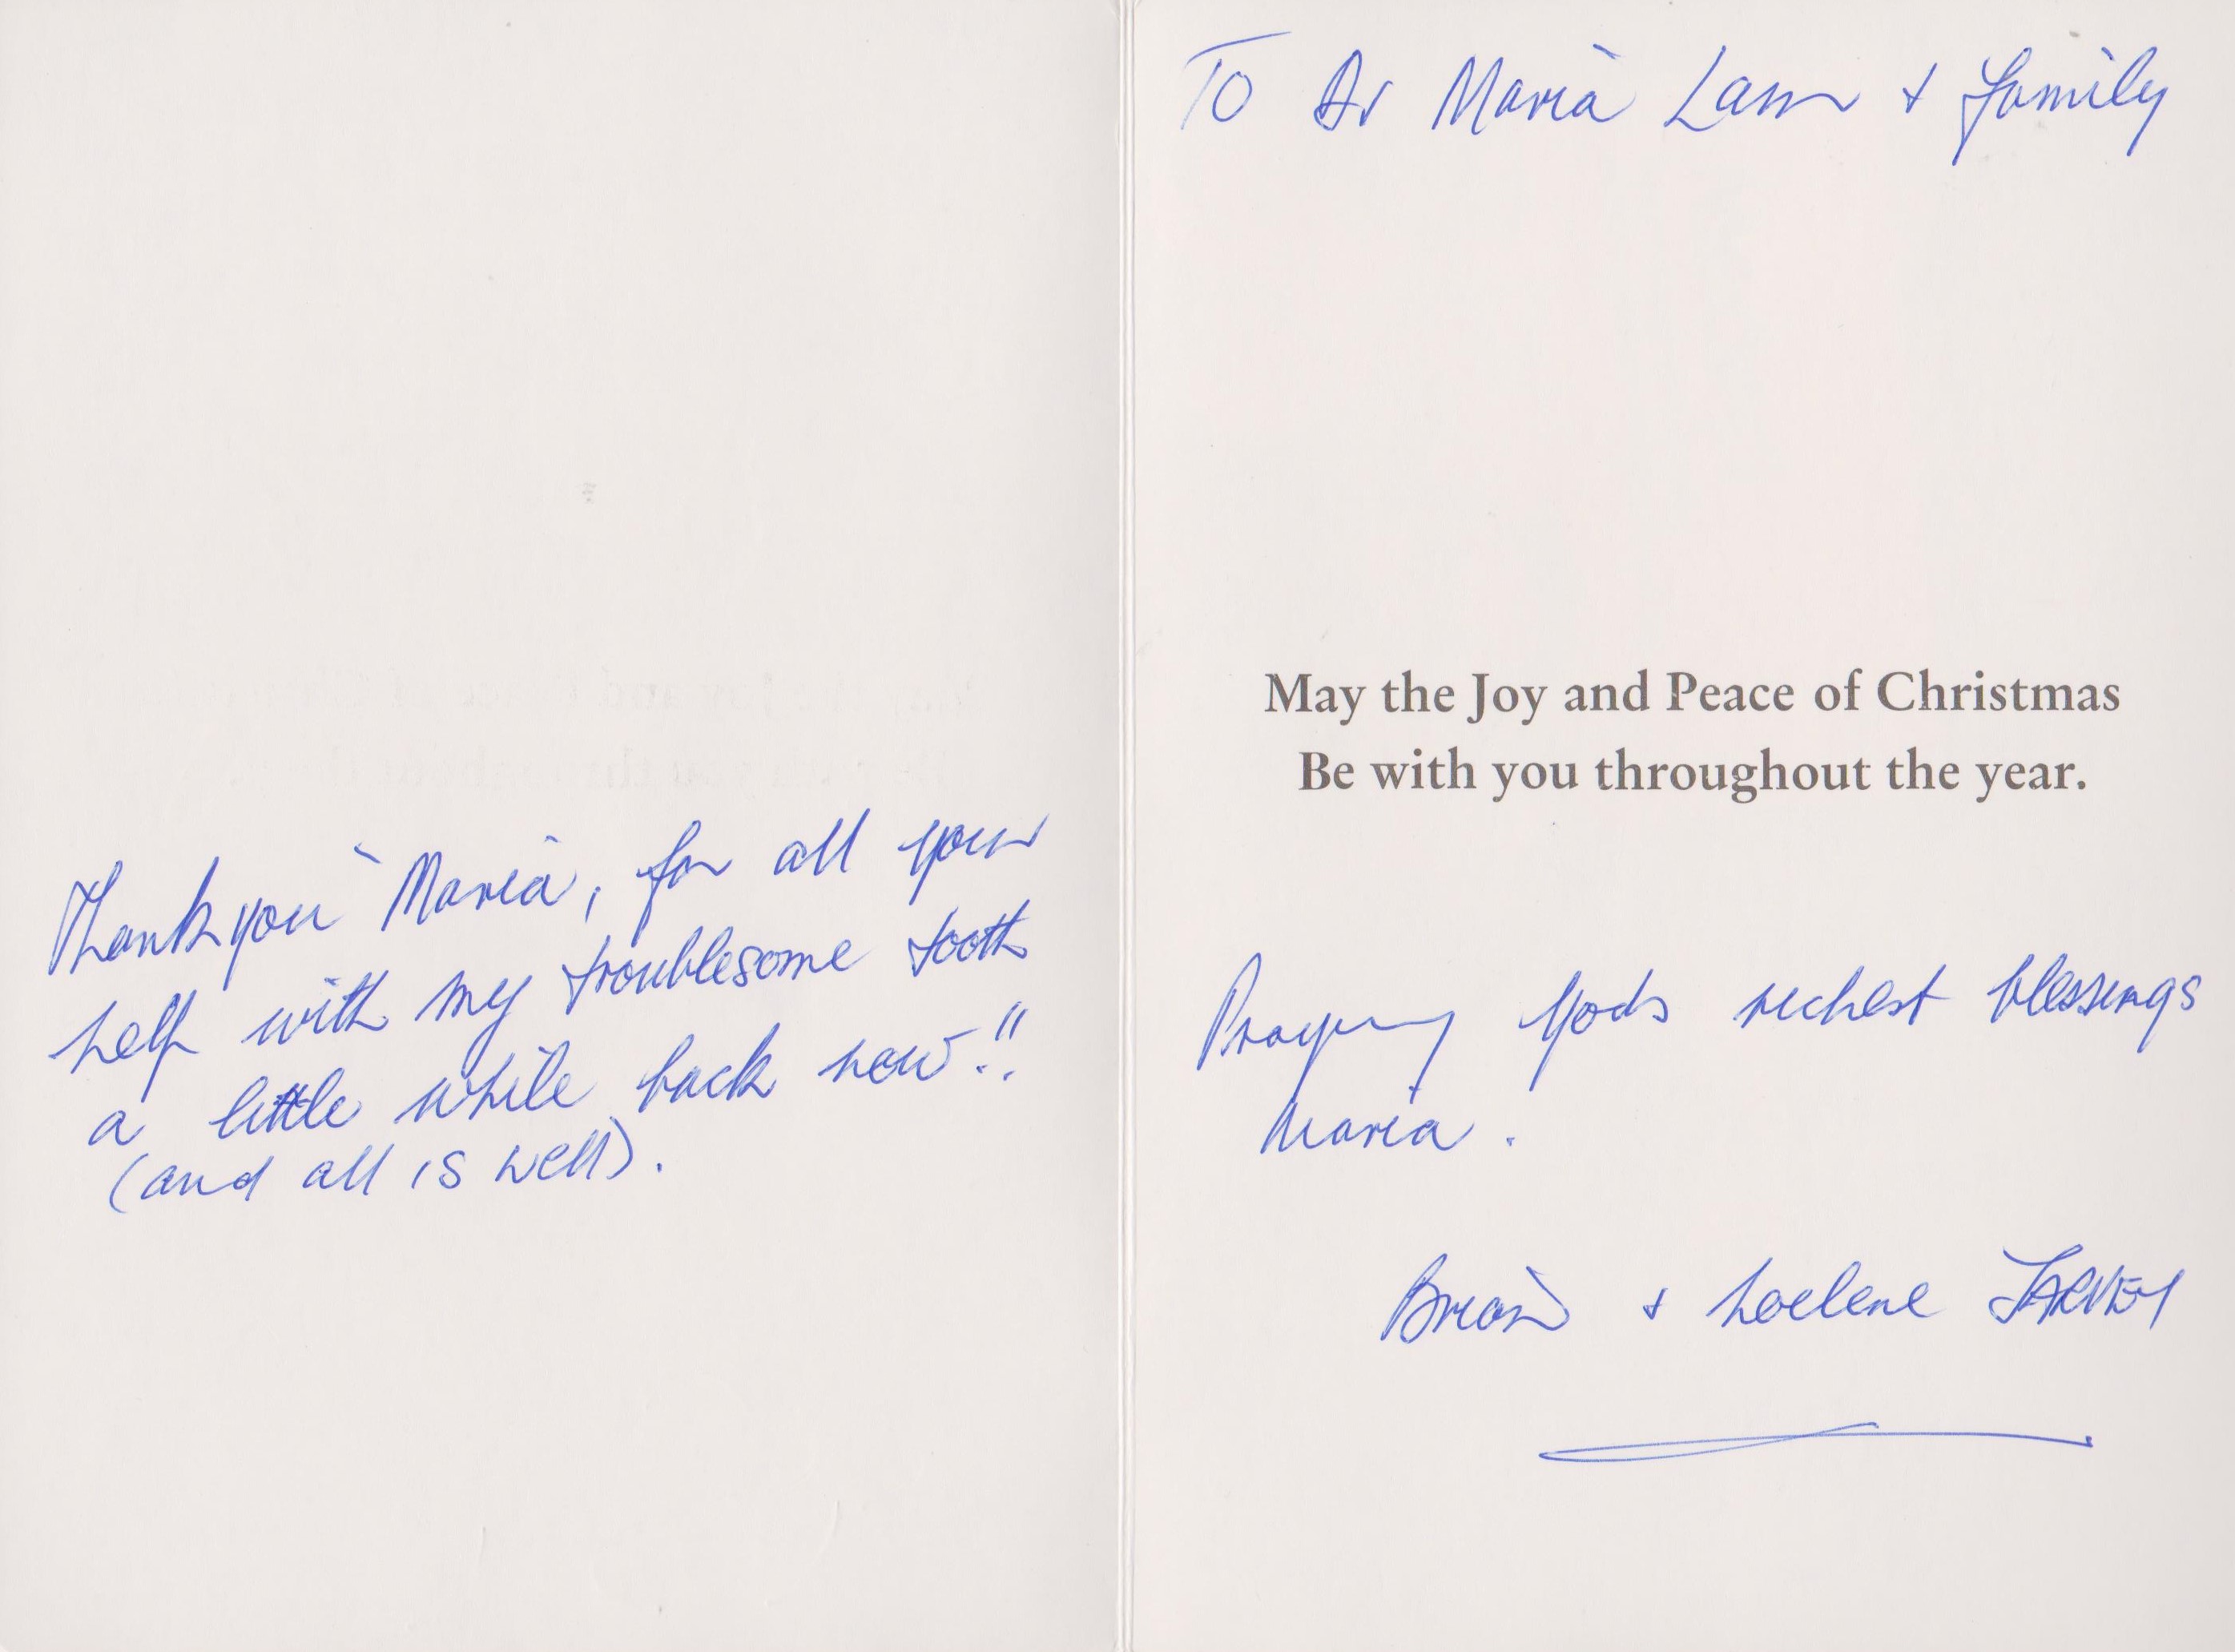 Thank you Maria, for all your
help with my troublesome tooth
a little while back now!!
(and all is well).
To Dr Maria Lam + family
May the Joy and Peace of Christmas
Be with you throughout the year.
Praying Gods richest blessings
Maria.
Brian + Loelene JARVEY